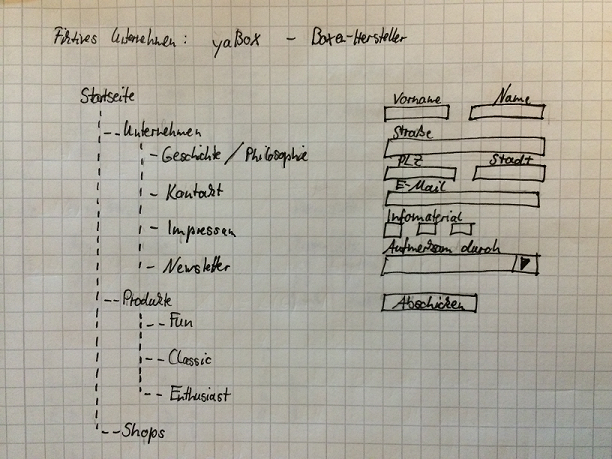 Fiktives Unternehmen: yaBox - Boxen-Hersteller
Startseite
Unternehmen
Geschichte / Philosophie
Kontakt
Impressum
Newsletter
Produkte
Fun
Classic
Enthusiast
Shops
Vorname Name
Straße
PLZ Stadt
E-Mail
Infomaterial
Aufmerksam durch
Abschicken